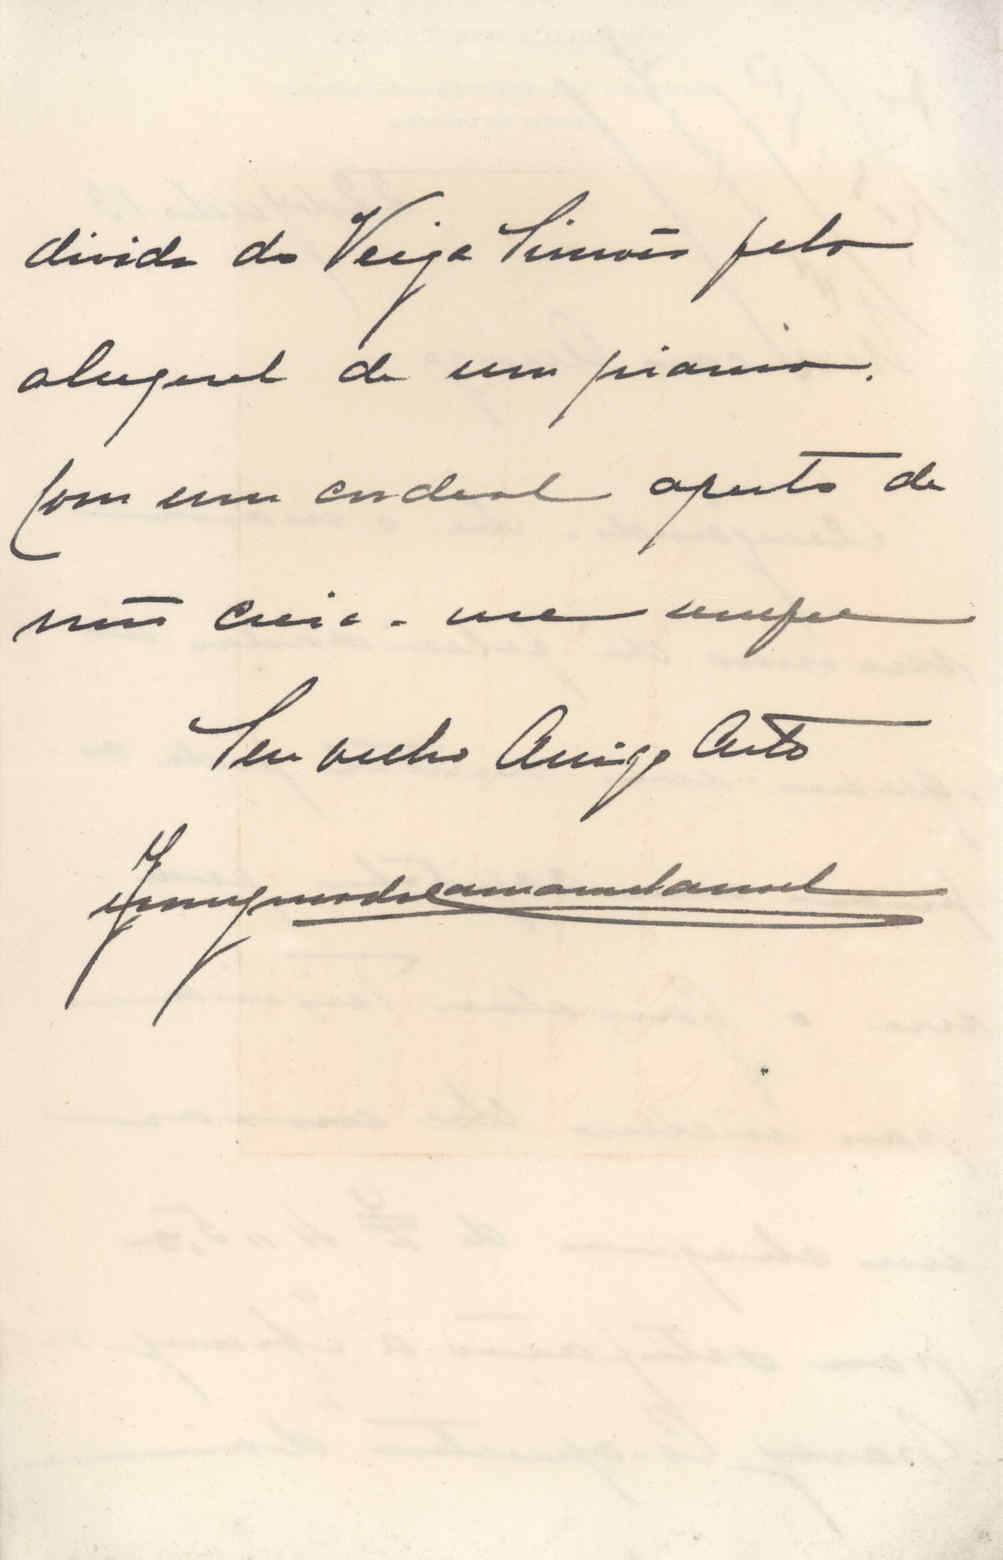 divida do Veiga Simões pelo
aluguel de um piano.
Com um cordeal aperto de
mão creia-me sempre
Seu velho Amigo Certo